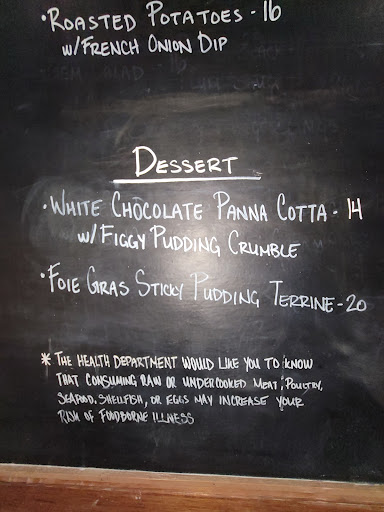 • ROASTED POTATOES - 16
W/ FRENCH ONION DIP
DESSERT
• WHITE CHOCOLATE PANNA COTTA - 14
W/ FIGGY PUDDING CRUMBLE
• FOIE GRAS STICKY PUDDING TERRINE - 20
* THE HEALTH DEPARTMENT WOULD LIKE YOU TO KNOW
THAT CONSUMING RAW OR UNDERCOOKED MEAT, POULTRY,
SEAFOOD, SHELLFISH, OR EGGS MAY INCREASE YOUR
RISK OF FOODBORNE ILLNESS